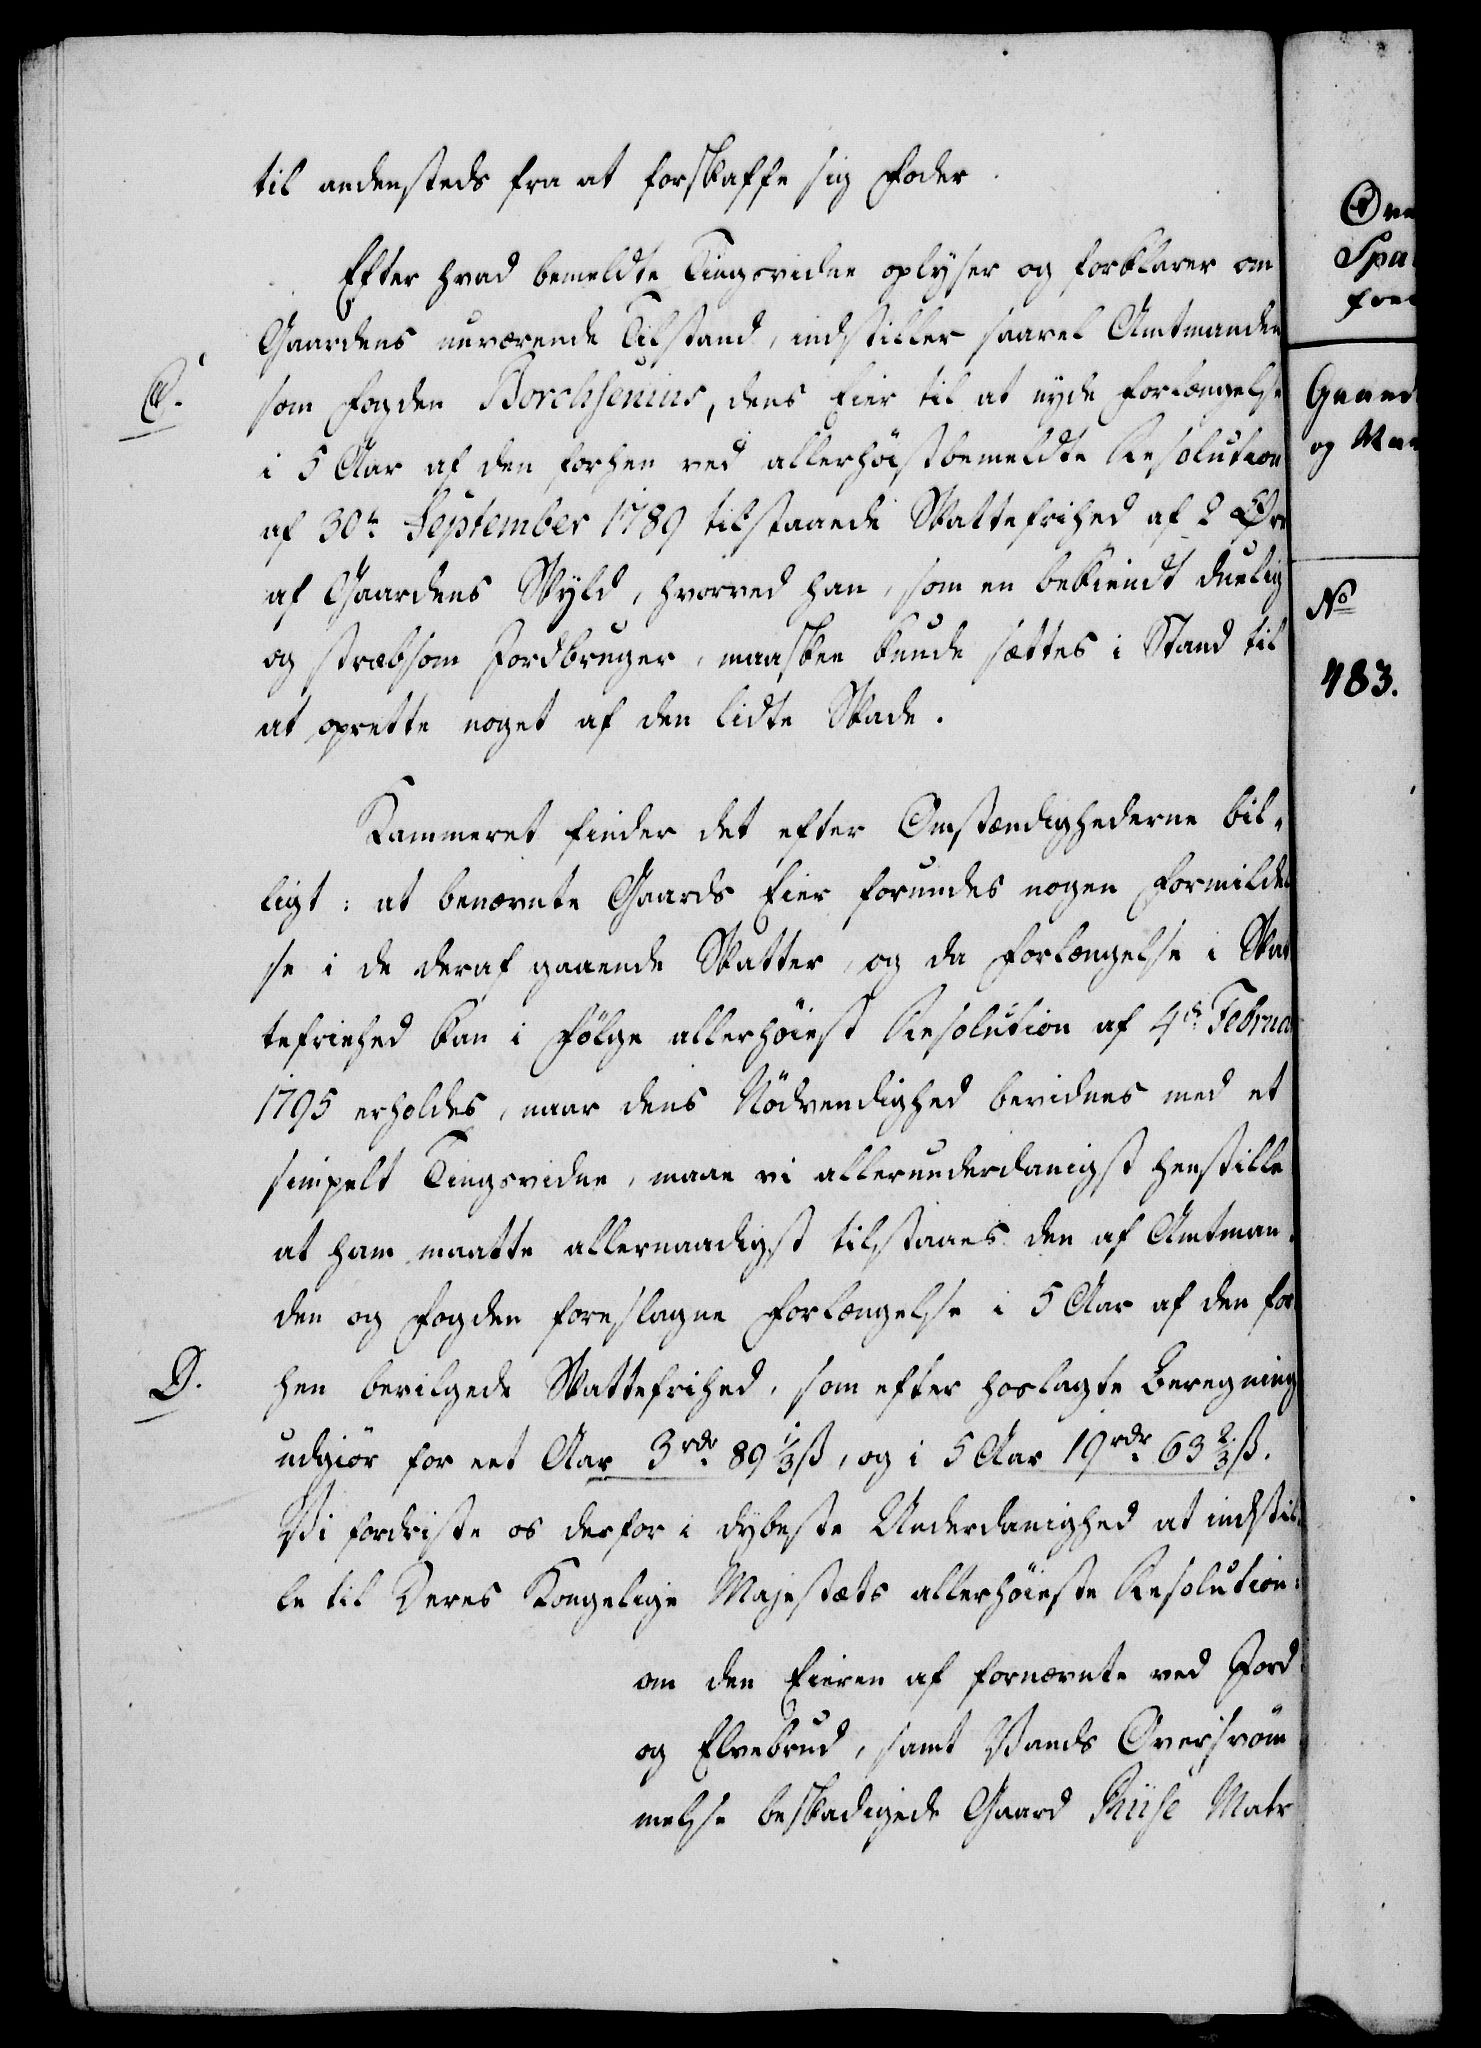 til andensteds fra at forskaffe sig Foder.
Efter hvad bemeldte Tingsvidne oplyser og forklarer om
Gaardens nuværende Tilstand, indstiller saavel Amtmanden
C.
som Fogden Borchsenius, dens Eier til at nyde Forlængelse
i 5 Aar af den forhen ved allerhöistbemeldte Resolution
af 30te September 1789 tilstaaede Skattefrihed af 2 Øre
af Gaardens Skyld, hvorved han, som en bekiendt duelig
og stræbsom Jordbruger, maaskee kunde sættes i Stand til
at oprette noget af den lidte Skade.
Kammeret finder det efter Omstændighederne bil-
ligt: at benævnte Gaards Eier forundes nogen Formildel
se i de deraf gaaende Skatter, og da Forlængelse i Skat
tefriehed kan i Fölge allerhöiest Resolution af 4de Februa
1795 erholdes, naar dens Nödvendighed bevidnes med et
simpelt Tingsvidne, maae vi allerunderdanigst henstille
at ham maatte allernaadigst tilstaaes den af Amtman-
den og Fogden foreslagne Forlængelse i 5 Aar af den for
D.
hen bevilgede Skattefrihed, som efter hoslagte Beregning
udgiör for eet Aar 3 rdr. 89 1/3 ß, og i 5 Aar 19 rdr. 63 2/3 ß.
Vi fordriste os derfor i dybeste Underdanighed at indstil-
le til Deres Kongelige Majestæts allerhöieste Resolution:
om den Eieren af fornævnte ved Jord
og Elvebrud, samt Vands Oversvöm
melse beskadigede Gaard Riise Matr
Ove
Spa
Gaard
og
No
483.